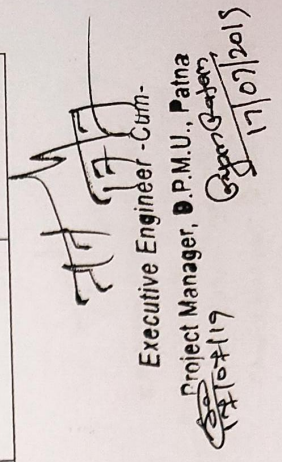 17
Executive Engineer -Cum-
Project Manager, D.P.M.U., Patna
17/07/19
17/07/2019